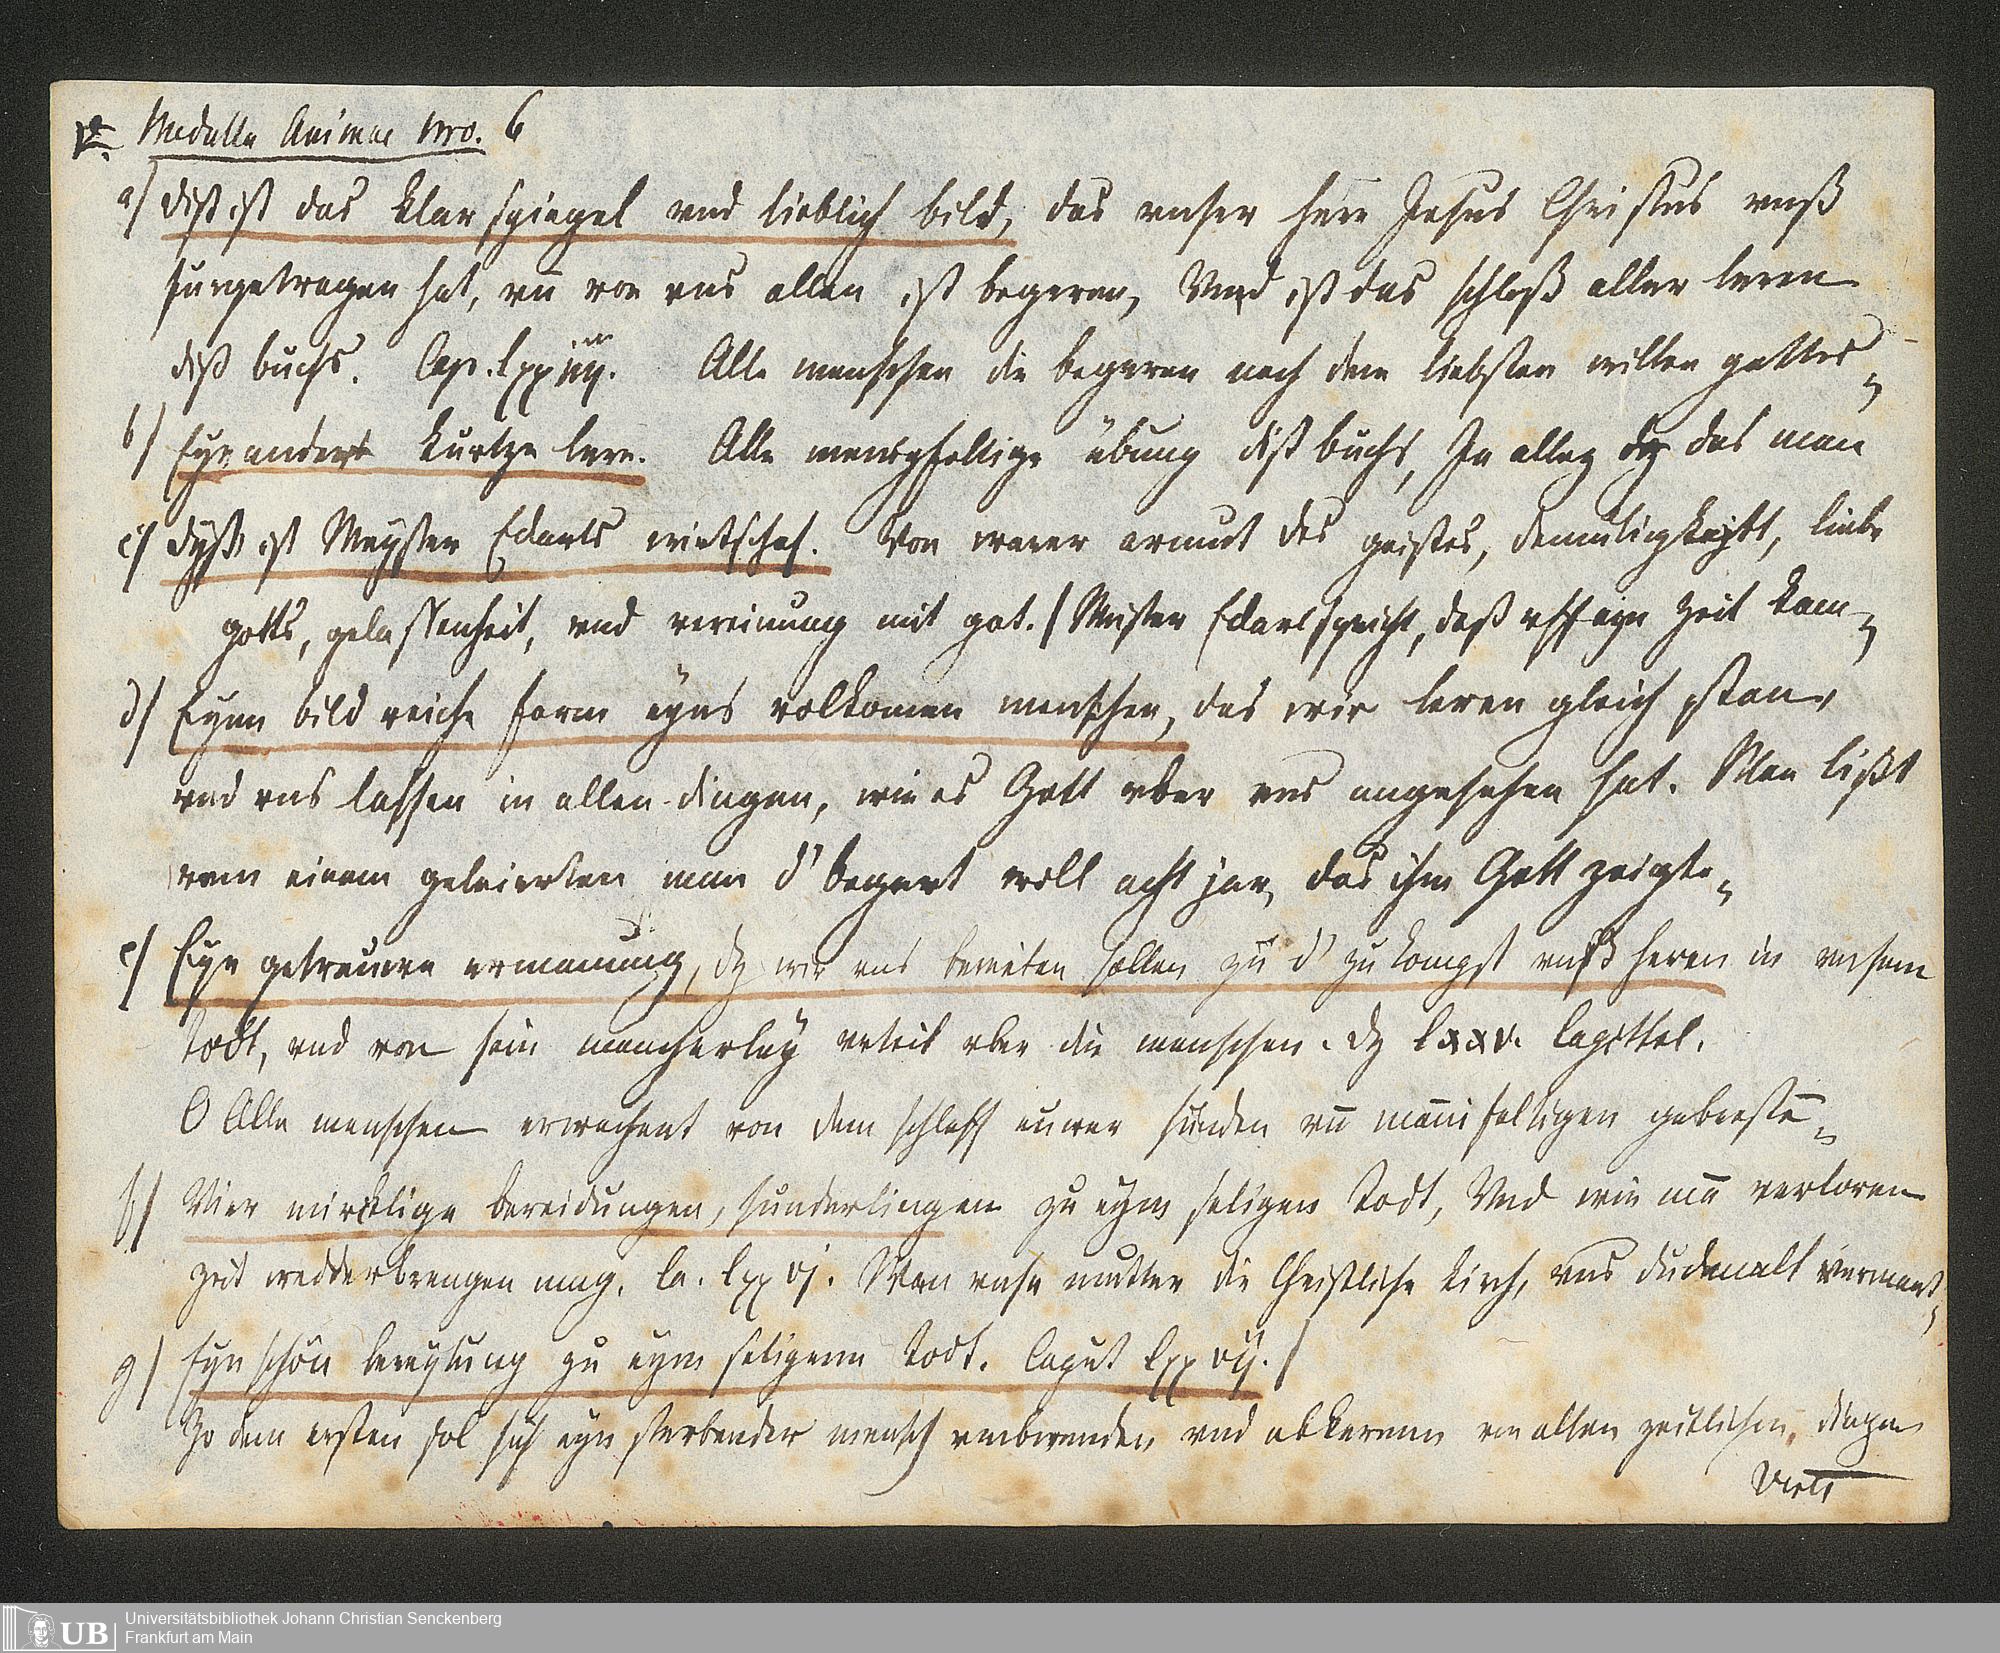 V. Medulla Animae Nro. 6
a) Dißist das klar spiegel vnd lieblich bild, das vnser herr Jesus Christus vnß
furgetragen hat, vñ von vns allen ist begeren, Vnd ist das schloß aller leren
diß buchs. Cap. lxxiiij. Alle menschen die begeren noch dem liebsten willen gottes
b) Eyn andere kurtze lere. Alle menigfeltige übung diß buchs, In alleg das man
c) Dyß ist Meyster Eckarts wirtschaf. Von warer armut des geistes, demutigkeytt, liebe
gotts, gelassenheit, vnd vereinung mit got. / Meister Eckart spricht, daß vff eyn Zeit kam
d) Eynn bild reiche form eyns volkomen menschen, das wir leren gleich stan,
vnd vns lassen in allen dingen, wie es Gott vber vns angesehen hat. Man lißt
vom einem geleierten man d' begert woll acht jar, das ihm Gott zeigte
e) Eyn getreuwe ermanung, dz wir vns bereiten sollen zu d' zukompst vnß heren in vnsem
todt, vnd von sein mancherley vrteil vber die menschen. dz lxxv. Capittel.
O Alle menschen erwachent von dem schloff euwer sunden vñ manifeltigen gebreste
f) Vier wircklige bereidungen, sunderlingen zu eym seligen todt, Vnd wie mā verloren
zeit wedderbrengen mag. Ca. lxxvj. Wan vnse mutter die Christliche kirch, vns dickmalt vermant
g) Eyn schön bereytung zu eym seligenn todt. Caput lxxvij. /
Zo dem ersten sol sich eyn sterbender mensch vmbwenden vnd abkerenn von allen zeitlichen dingen
Universitätsbibliothek Johann Christian Senckenberg
UB Frankfurt am Main